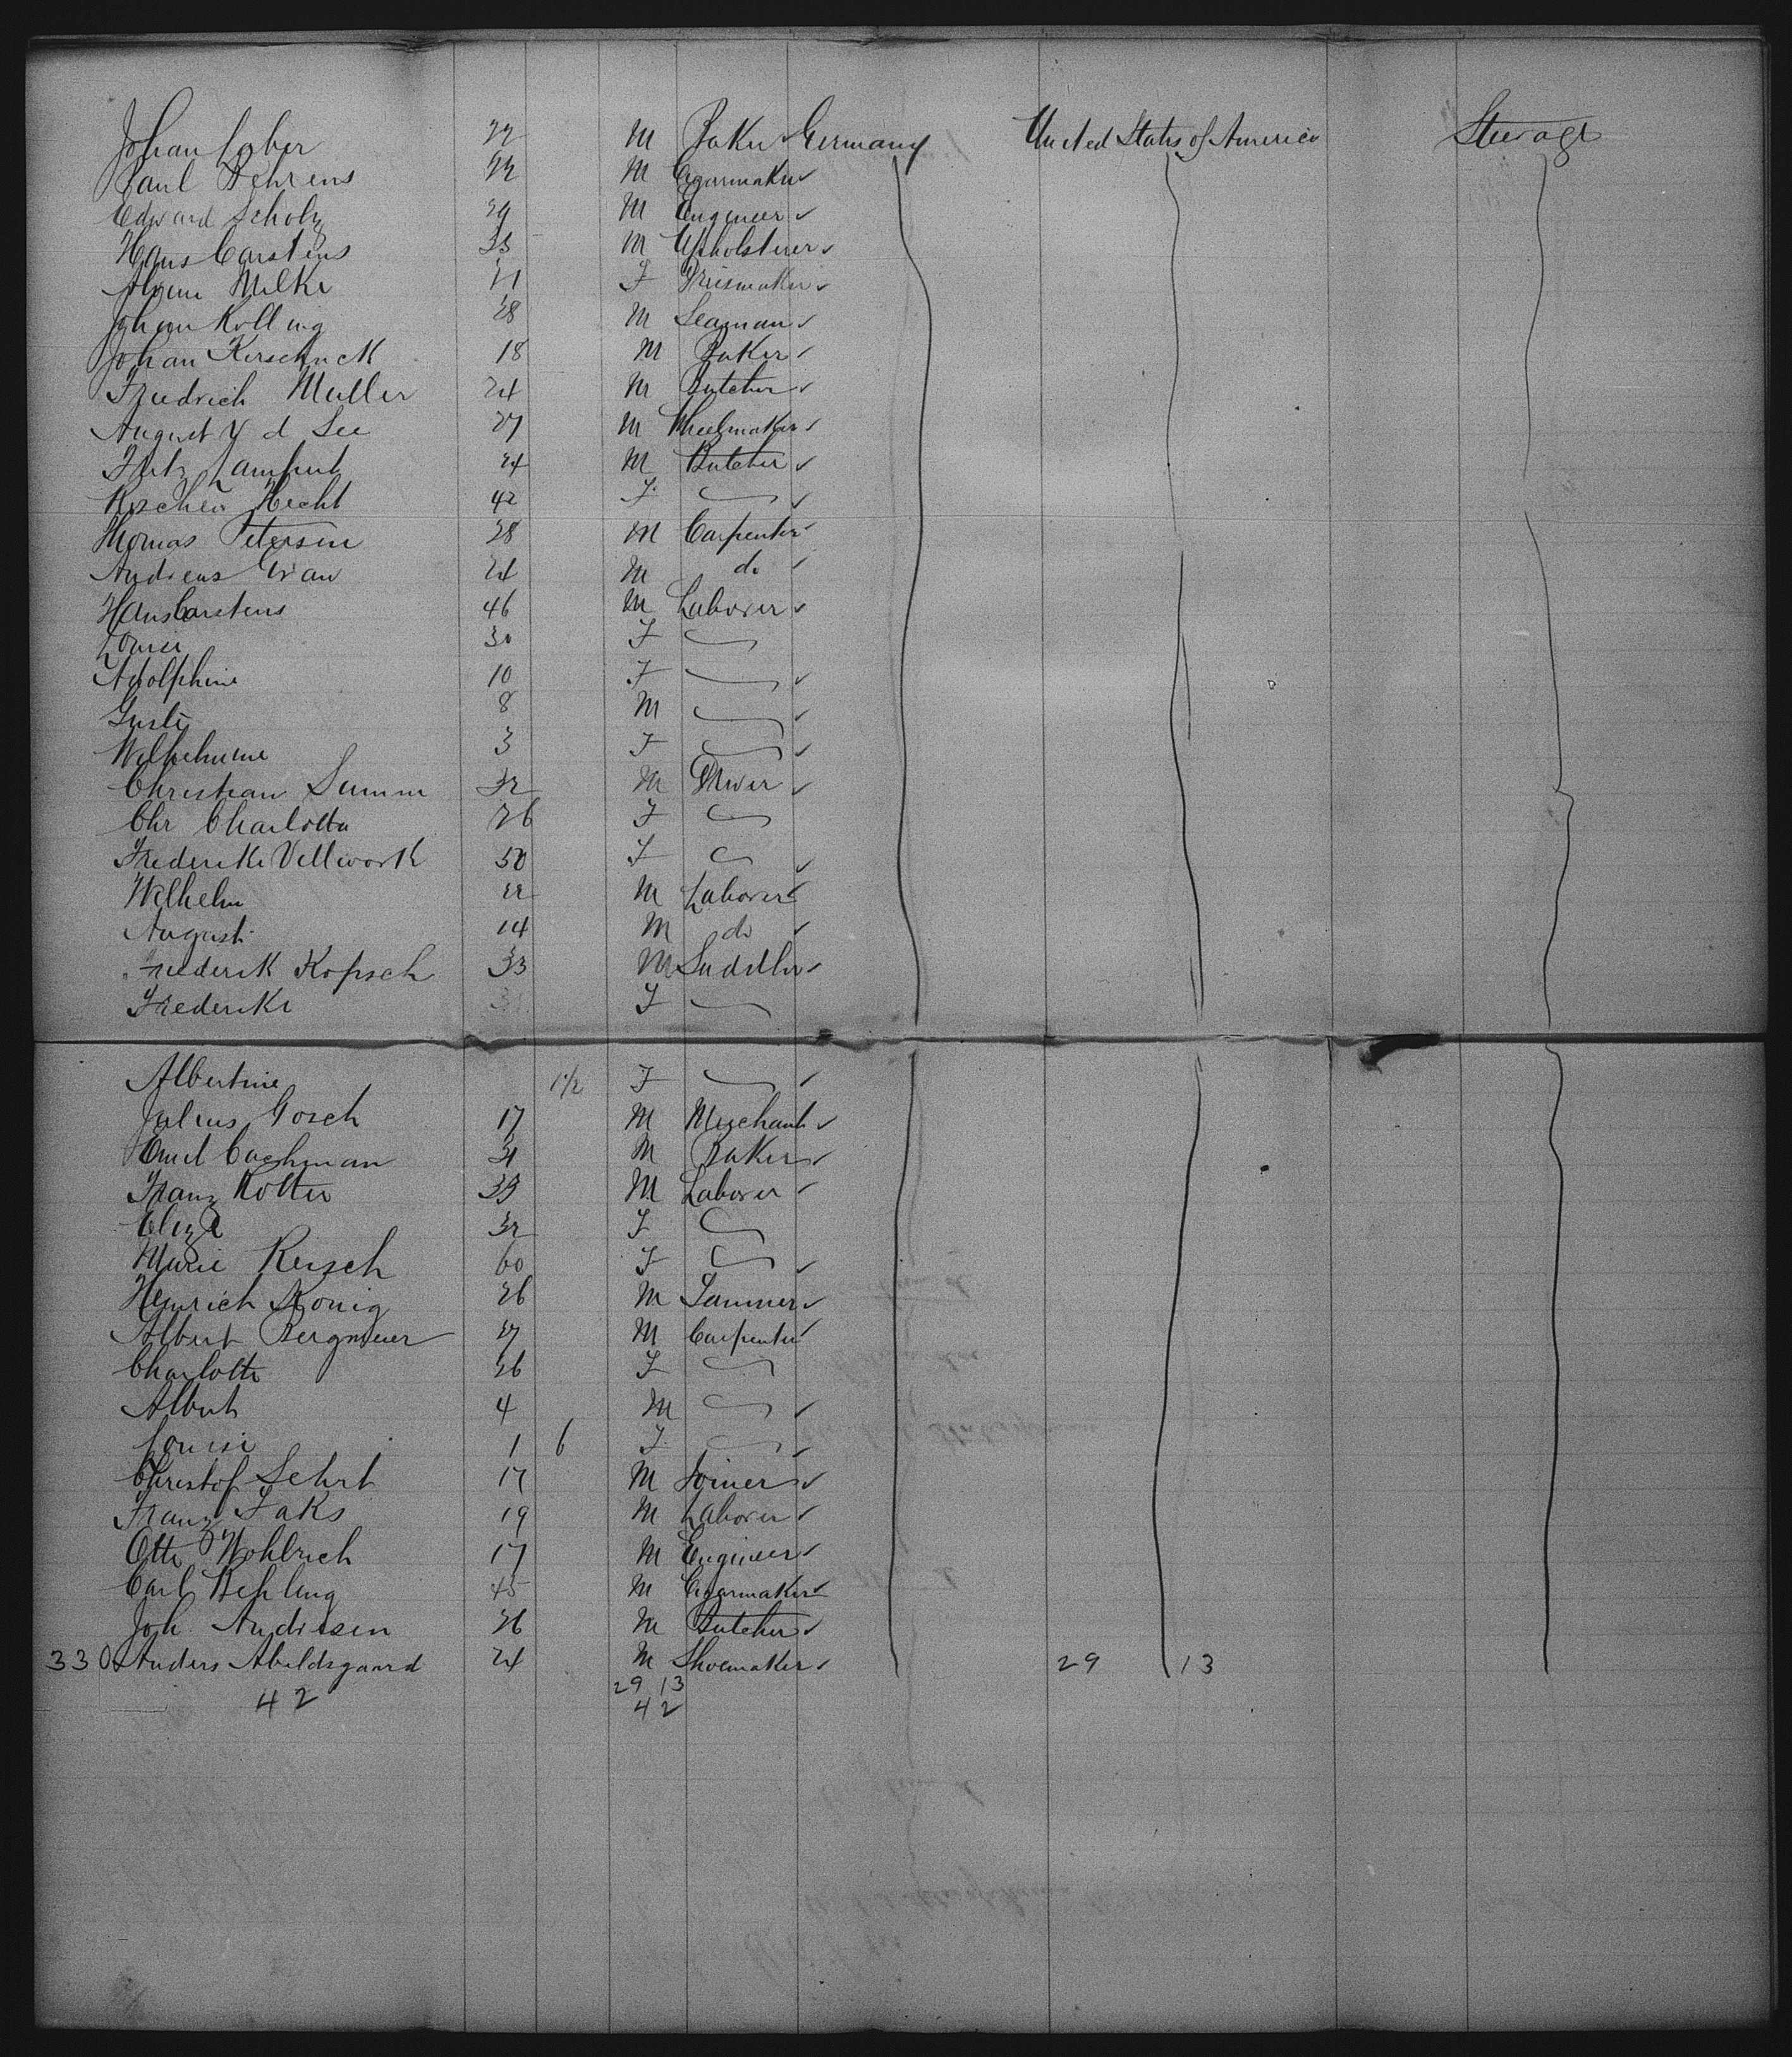 Johan Laber 22 M Baker Germany United States of America Steerage
Paul Behrens 22 M Cigarmaker
Edward Scholz 29 M Engineer
Hans Carstens 23 M Upholsterer
Milke 21 F Dressmaker
Johann Kolling 28 M Seaman
Johan Kerschnek 18 M Baker
Friedrich Muller 24 M Butcher
August V d See 27 M Wheelmaker
Fritz Lamprut 24 M Butcher
Hecht 42 F
Thomas Petersen 28 M Carpenter
Andreas Grau 24 M do
Hans Carstens 46 M Laborer
Louise 30 F
Adolphine 10 F
Guste 8 M
Wilhelmine 3 F
Christian Summ 32 M
Chr Charlotta 26 F
Frederike Vellwork 50 F
Wilhelm 22 M Laborer
August 14 M do
Frederik Kopsch 33 M Saddler
Frederike F
Albertine 1/2 F
Julius Gosch 17 M Merchant
Emil Cachman 31 M Baker
Franz Kolter 39 M Laborer
Eliza 32 F
Marie Kersch 60 F
Heinrich Konig 26 M Tanner
Albert Bergmeier 27 M Carpenter
Charlotte 26 F
Albert 4 M
Louise 1 6 F
Christof Sehrt 17 M Joiner
Franz Faks 19 M Laborer
Otto Wohlrich 17 M Engineer
Carl Behling 45 M Cigarmaker
Joh. Andresen 26 M Butcher
330 Anders Abildsgaard 24 M Shoemaker 29 13
29 13
42 42